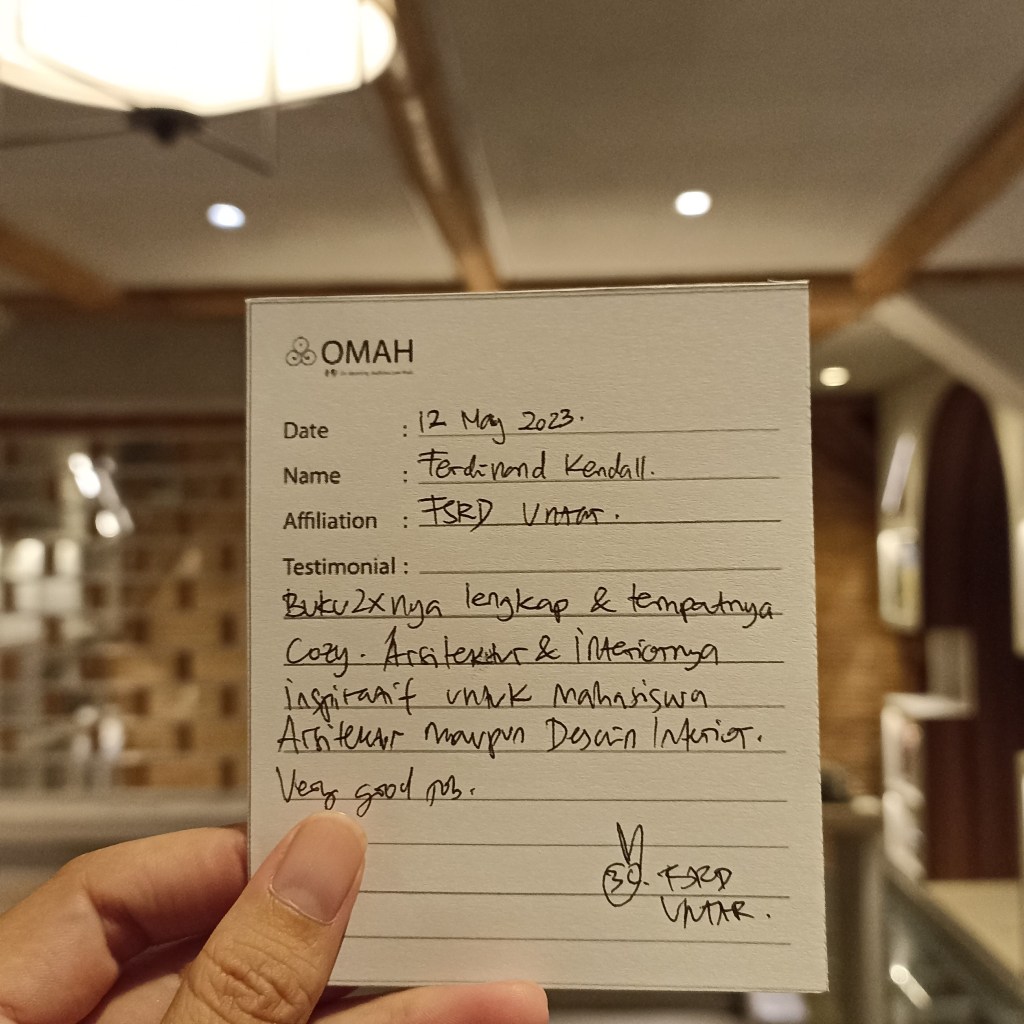 OMAH
Date : 12 May 2023.
Name : Ferdinand Kendall.
Affiliation : FSRD Untar.
Testimonial :
Buku2xnya lengkap & tempatnya
Cozy. Arsitektur & interiornya
inspiratif untuk Mahasiswa
Arsitektur maupun Desain Interior.
Very good job.
FSRD
UNTAR.